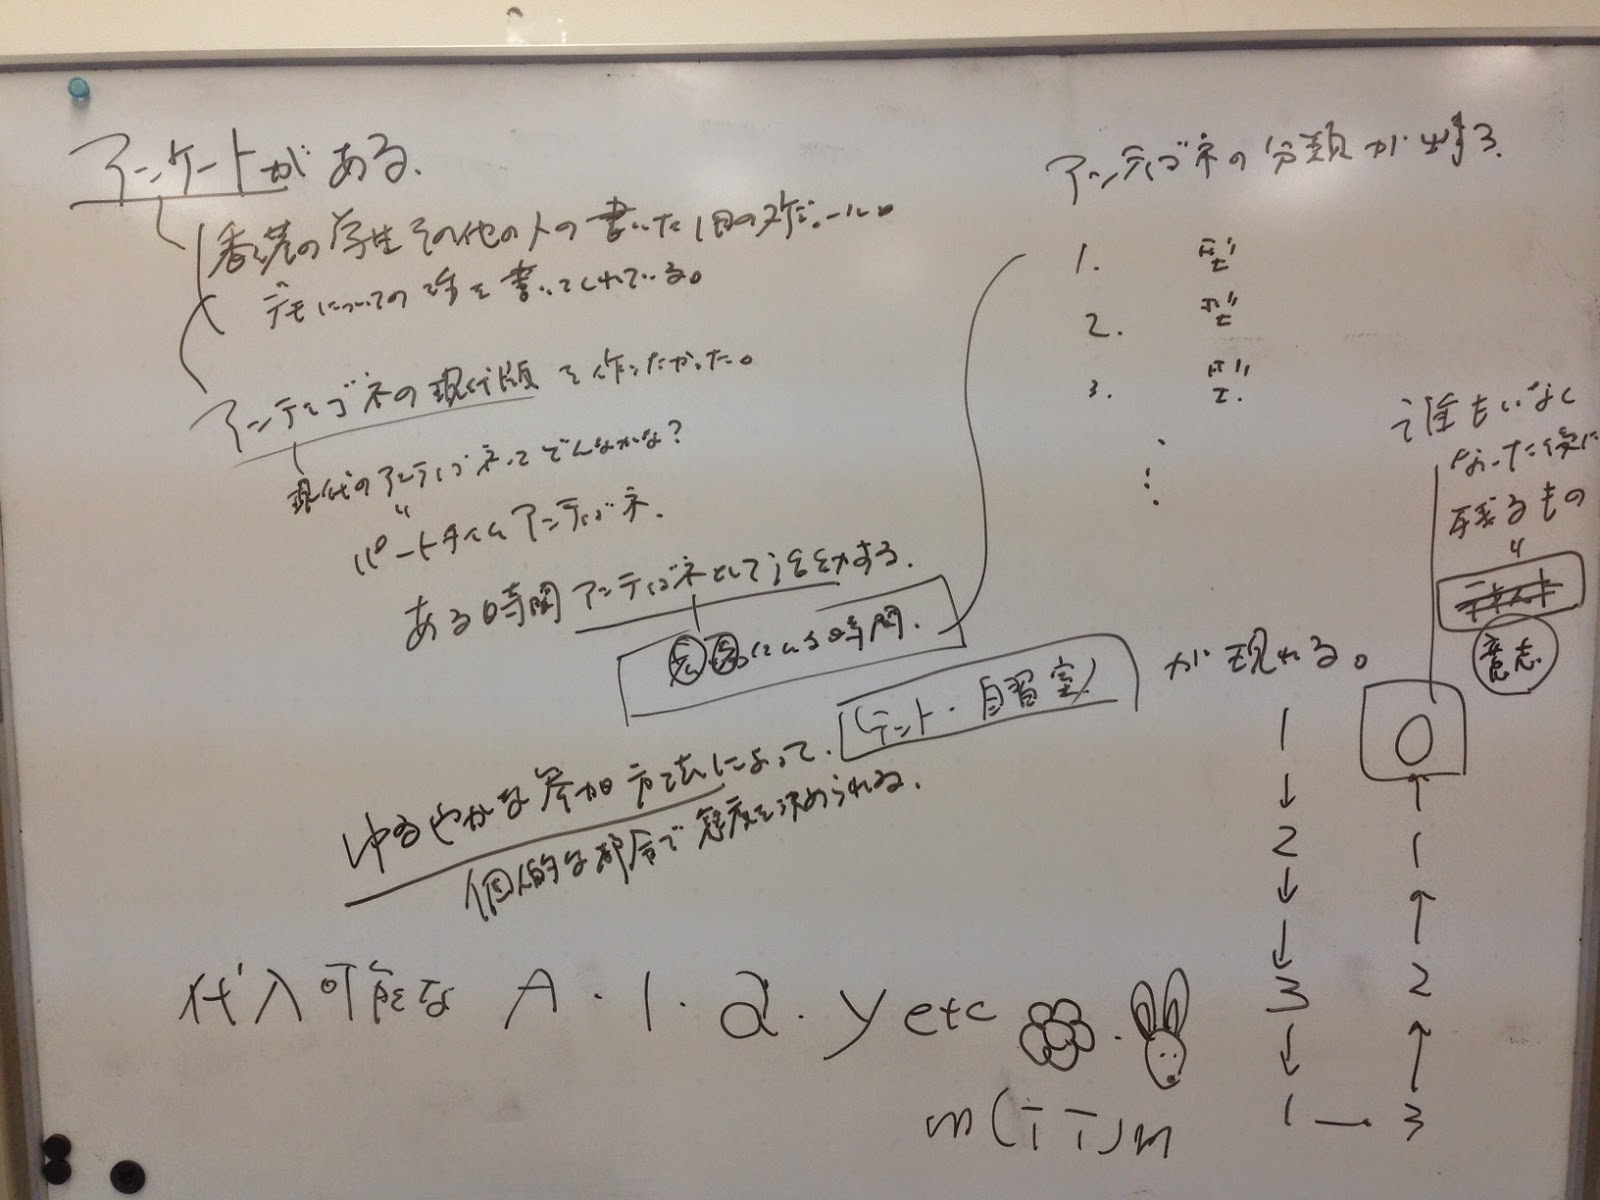 アンケートがある.
香港の学生その他の人の書いた1日のスケジュール。
デモについての詩を書いてくれている。
アンティゴネの現代版を作りたかった。
現代のアンティゴネってどんなかな?
〃
パートタイムアンティゴネ.
ある時間アンティゴネとして活動する.
にいる時間.
ゆるやかな参加方法によって.
(テント・自習室)
が現れる。
個人的な部分で態度を決められる.
代入可能な A・1・a・y etc
m(T T)m
アンティゴネの分類が出来る.
1. 型
2. 型
3. 型.
誰もいなく
なった後に
残るもの
〃
意志
0
1 ↓ 2 ↓ ↓ 3 ↓ 1 — 3 ↑ 2 ↑ 1 ↑